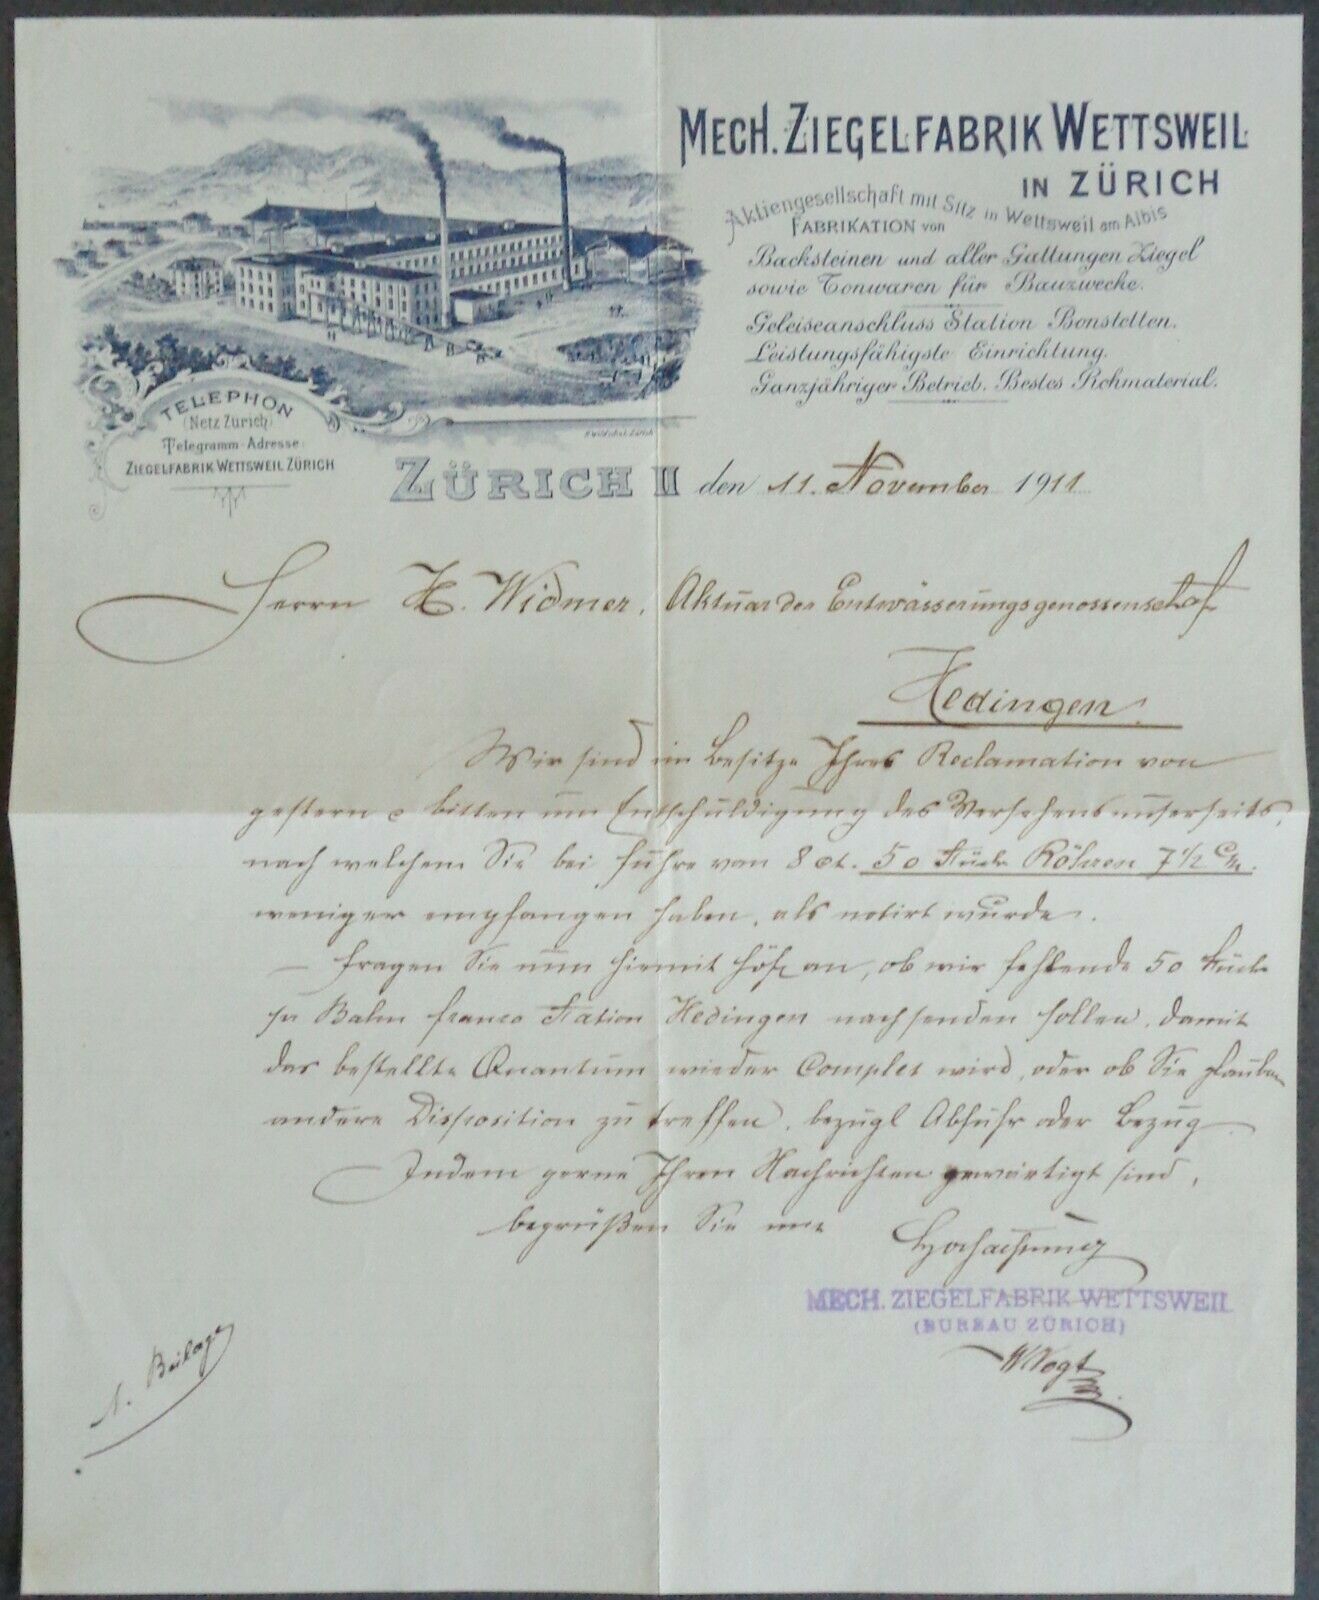 MECH. ZIEGELFABRIK WETTSWEIL
IN ZÜRICH
Aktiengesellschaft mit Sitz in Wettsweil am Albis
FABRIKATION von
Backsteinen und aller Gattungen Ziegel
sowie Tonwaren für Bauzwecke.
Geleiseanschluss Station Bonstetten.
Leistungsfähigste Einrichtung.
Ganzjähriger Betrieb. Bestes Rohmaterial.
TELEPHON
(Netz Zürich)
Telegramm-Adresse:
ZIEGELFABRIK WETTSWEIL ZÜRICH
ZÜRICH II den 11. November 1911
Herrn H. Widmer, Aktuar der Entwässerungsgenossenschaft
Hedingen.
Wir sind im Besitze Ihres Reclamation von
gestern & bitten um Entschuldigung des Versehens unserseits,
nach welchem Sie bei Fuhre vom 8 ct. 50 Stück Röhren 7 1/2 c/m.
weniger empfangen haben, als notirt wurde.
— Fragen Sie nun hiermit höfl. an, ob wir fehlende 50 Stück
per Bahn franco Station Hedingen nachsenden sollen, damit
das bestellte Quantum wieder Complet wird, oder ob Sie
andere Disposition zu treffen, bezügl Abfuhr oder Bezug.
Indem gerne Ihren Nachrichten gewärtigt sind,
begrüßen Sie mit Hochachtung
MECH. ZIEGELFABRIK WETTSWEIL
(BUREAU ZÜRICH)
Vogt
1. Beilage